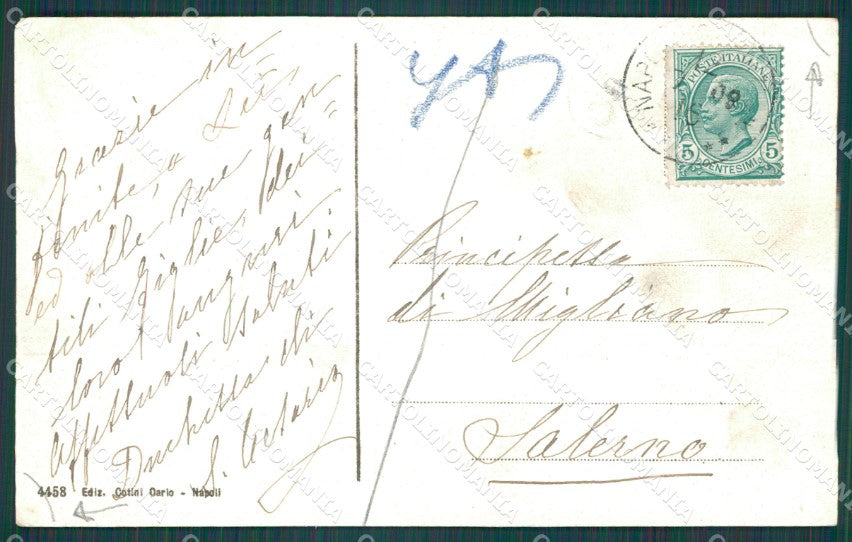 Grazie in=
finite, a Lei,
ed alle sue gen=
tili figlie, dei
loro auguri.
Affettuosi saluti
Duchessa di
S.
4458 Ediz. Cotini Dario - Napoli
POSTE ITALIANE
08
5 CENTESIMI 5
Principessa
di Migliano
Salerno
CARTOLINOMANIA